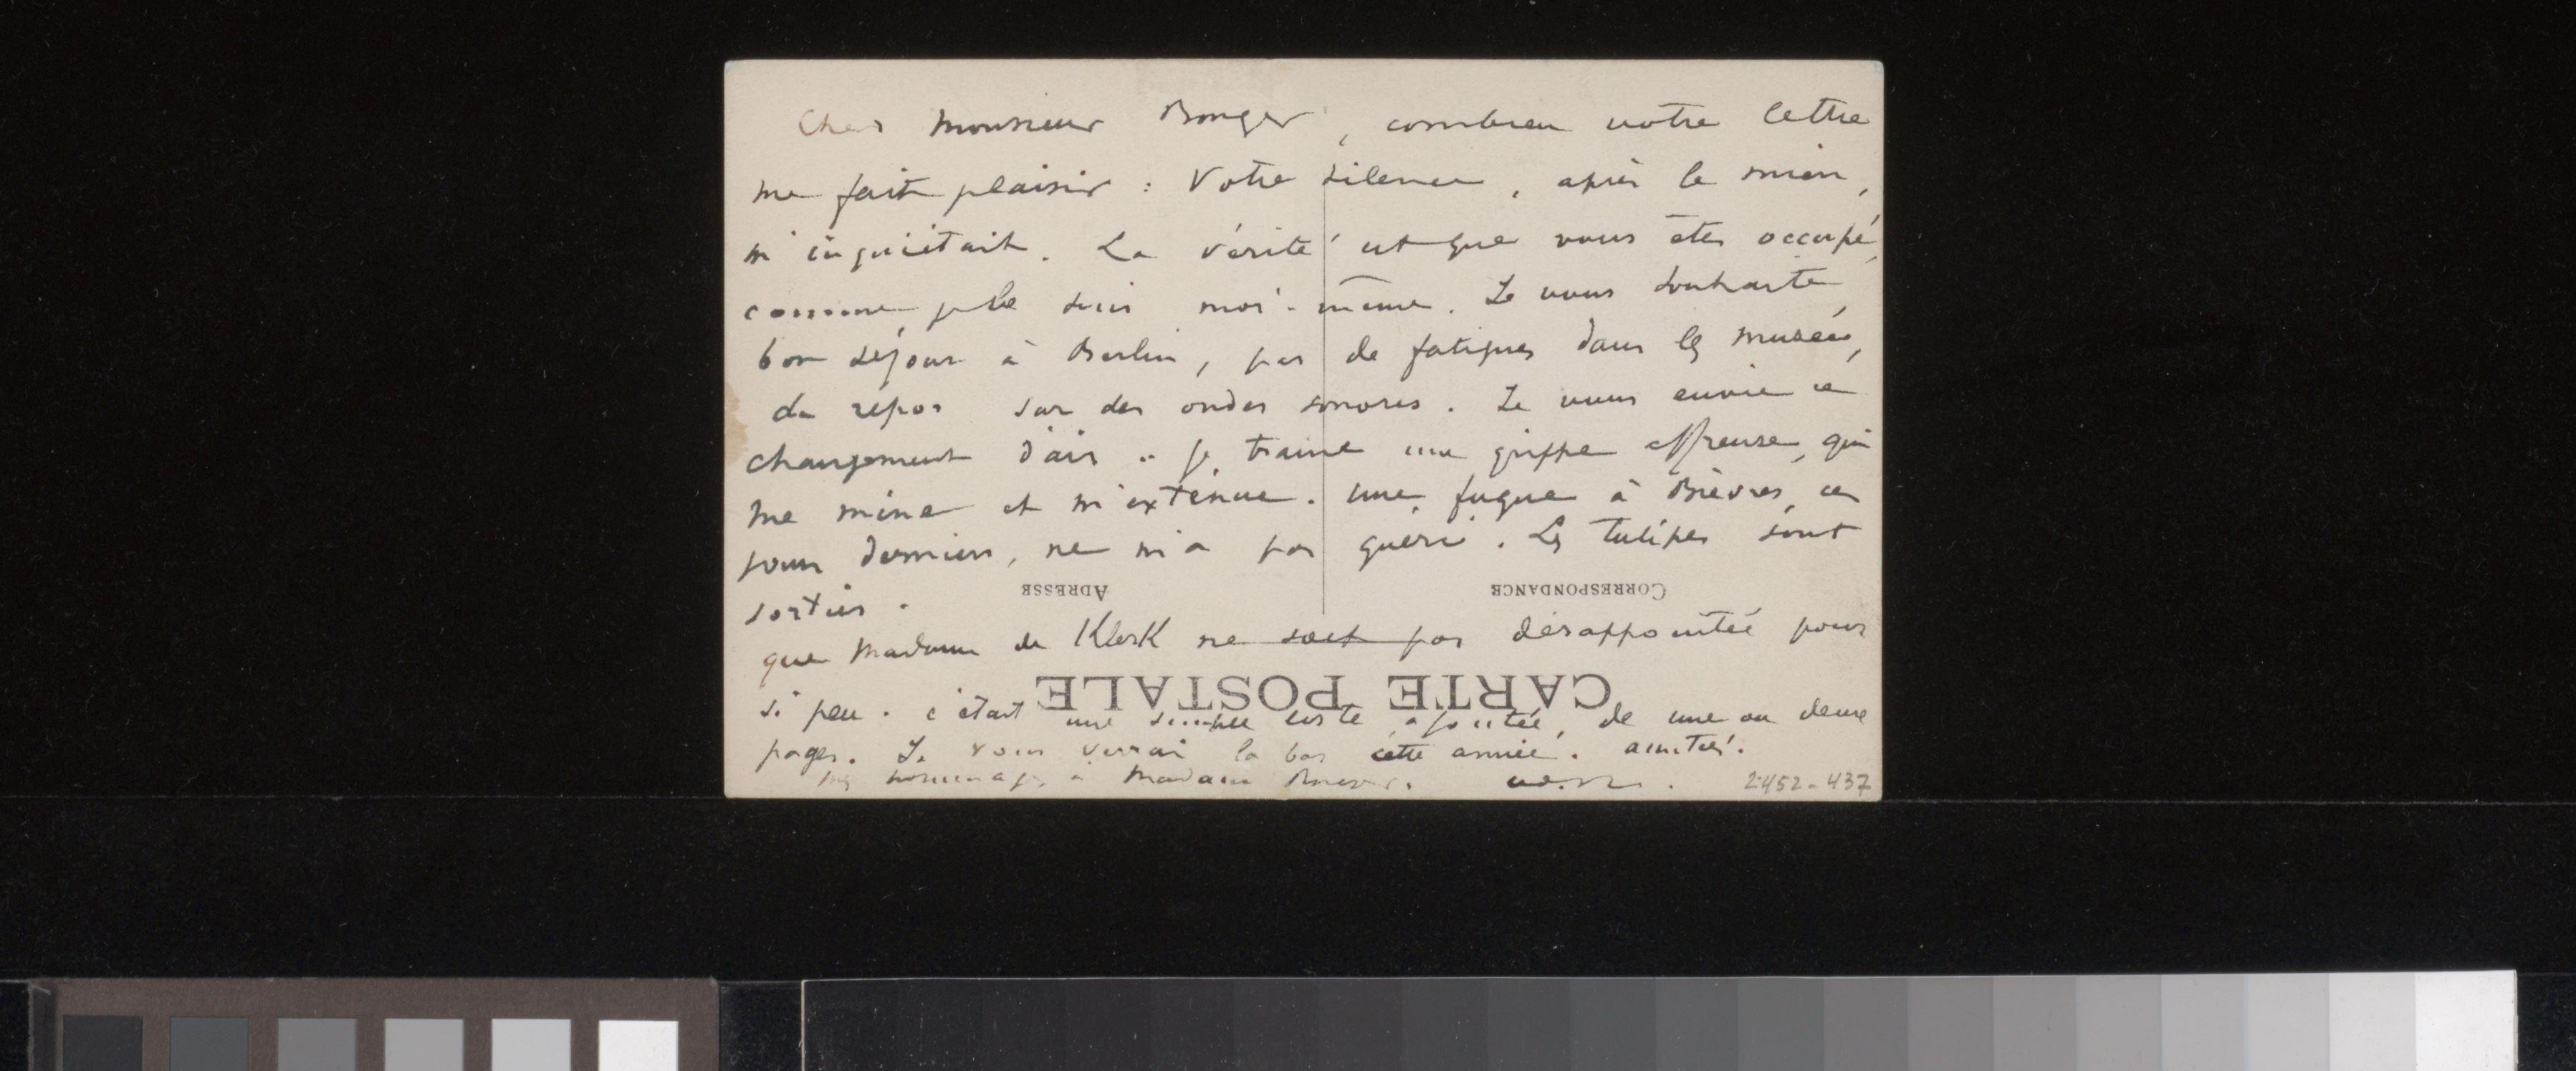 Cher Monsieur Bonger, combien votre lettre
me fait plaisir : Votre silence, après le mien,
m'inquiétait. La vérité est que vous êtes occupé,
comme je le suis moi-même. Je vous souhaite
bon séjour à Berlin, pas de fatigues dans les musées,
du repos sur des ondes sonores. Je vous envie ce
changement d'air .. je traine une grippe affreuse, qui
me mine et m'exténue. Une fugue à Bièvres, ces
jours derniers, ne m'a pas guéri. Les tulipes sont
sorties.
ADRESSE
CORRESPONDANCE
que Madame de Klerk ne soit pas désappointée pour
CARTE POSTALE
si peu. c'était une simple liste ajoutée, de une ou deux
pages. Je vous verrai là bas cette année. amitiés.
mes hommages à Madame Bonger.
2452-437